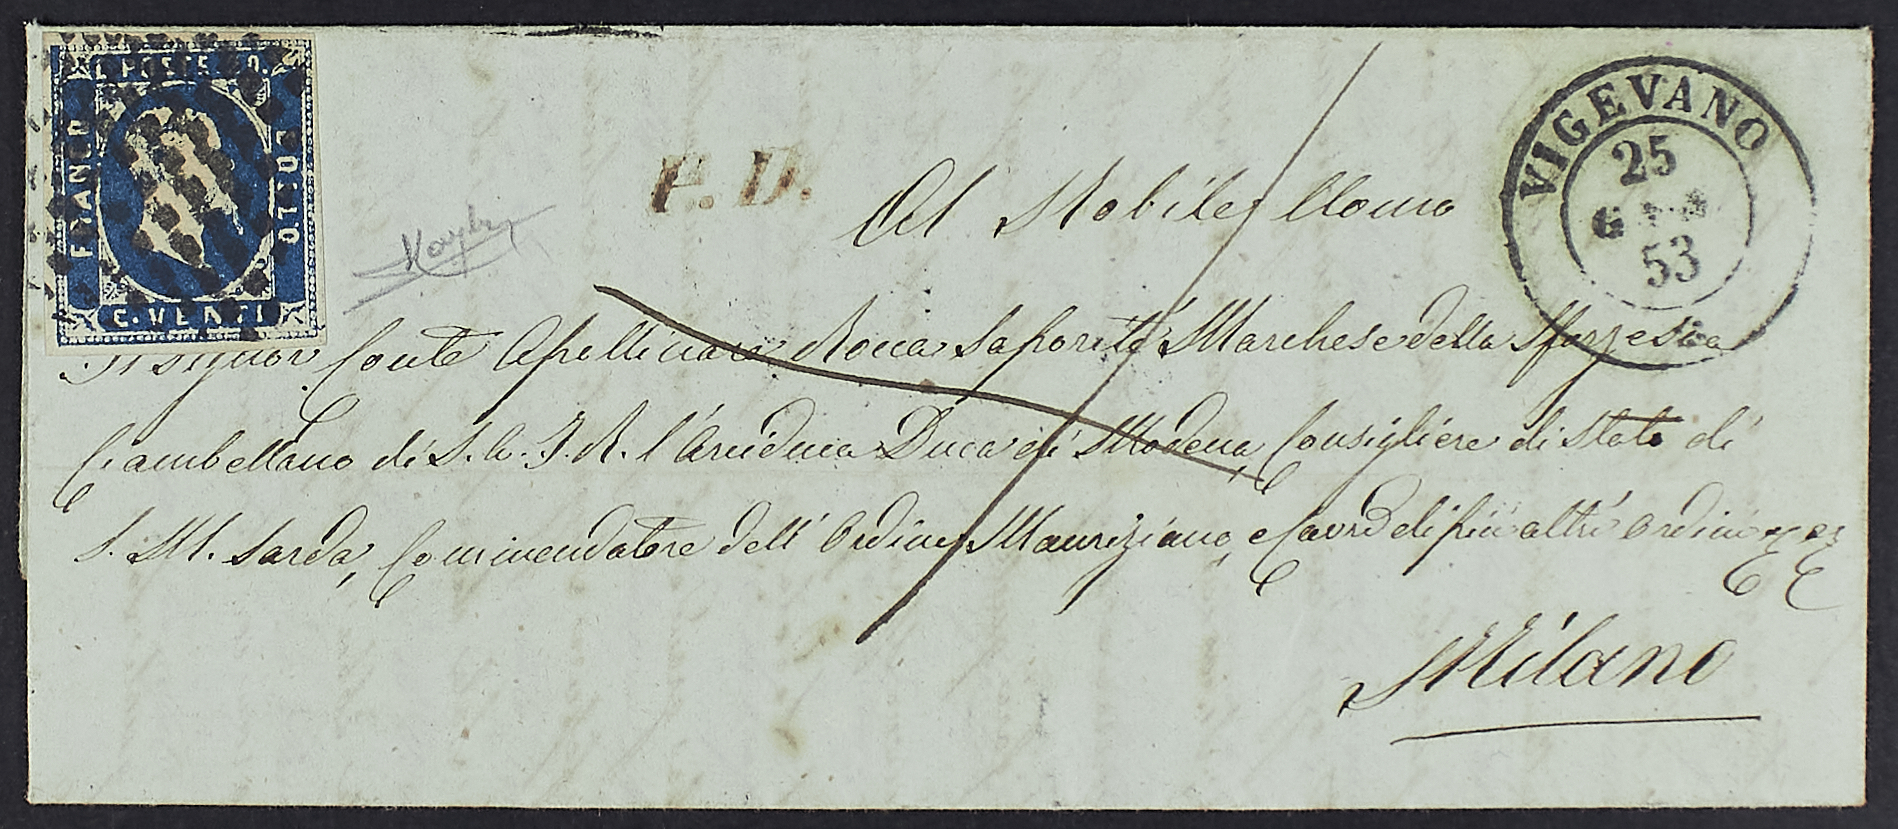 C. POSTE BO.
FRANCO
BOLLO
C. VENTI
P. D.
VIGEVANO
25
53
Al Nobile Uomo
Il Signor Conte Apollinare Rocca Saporiti Marchese della Sforzesca
Ciambellano di S. A. I. R. l'Arciduca Duca di Modena, Consigliere di Stato di
S. M. Sarda, Commendatore dell' Ordine Mauriziano, e Cavre di più altri Ordini
Milano